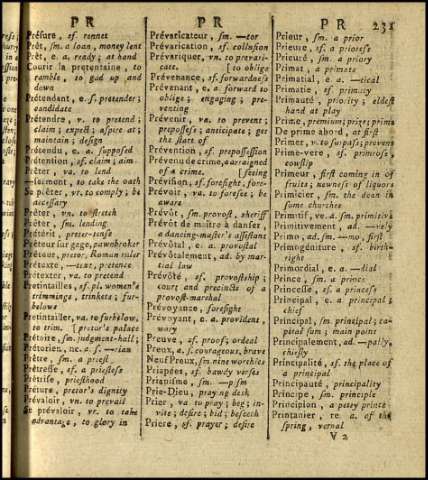 PR
PR
PR
231
Présure, sf. rennet
Prêt, sm. a loan, money lent
Prêt, e. a. ready; at hand
Courir la pretentaine, to
ramble, to gad up and
down
Prétendant, e. s. pretender;
candidate
Prétendre, v. to pretend;
claim; expect; aspire at;
maintain; design
Prétendu, e. a. supposed
Prétention, sf. claim; aim
Prêter, va. to lend
—serment, to take the oath
Se prêter, vr. to comply; be
accessary
Prêter, vn. to stretch
Prêter, sm. lending
Prétérit, preter-tense
Prêteur sur gege, pawnbroker
Préteur, pretor, Roman ruler
Prétexte, —text, pretence
Prétexter, va. to pretend
Pretintailles, sf. pl. women's
trimmings, trinkets; fur-
belows
Pretintailler, va. to furbelow,
to trim. [pretor's palace
Prétoire, sm. judgment-hall;
Prétorien, ne. a. s. —rian
Prêtre, sm. a priest
Prêtresse, sf. a priestess
Prêtrise, priesthood
Préture, pretor's dignity
Prévaloir, vn. to prevail
Se prévaloir, vr. to take
advantage, to glory in
Prévaricateur, sm. —tor
Prévarication, sf. collusion
Prévariquer, vn. to prevari-
cate. [to oblige
Prévenance, sf. forwardness
Prévenant, e. a. forward to
oblige; engaging; pre-
venting
Prévenir, va. to prevent;
prepossess; anticipate; get
the start of
Prévention, sf. prepossession
Prévenu de crime, a. arraigned
of a crime. [seeing
Prévision, sf. foresight, fore-
Prévoir, va. to foresee; be
aware
Prévôt, sm. provost, sheriff
Prévôt de maître à danser,
a dancing-master's assistant
Prévôtal, e. a. provostal
Prévôtalement, ad. by mar-
tial law
Prévôté, sf. provostship;
court and precincts of a
provost-marshal
Prévoyance, foresight
Prévoyant, e. a. provident,
wary
Preuve, sf. proof; ordeal
Preux, a. s. courageous, brave
Neuf Preux, sm. nine worthies
Priapées, sf. bawdy verses
Priapisme, sm. —pism
Prie-Dieu, praying desk
Prier, va to pray; beg; in-
vite; desire; bid; beseech
Priere, sf. prayer; desire
Prieur, sm. a prior
Prieure, sf. a prioress
Prieuré, sm. a priory
Primat, a primate
Primatial, e. a. —tical
Primatie, sf. primacy
Primauté, priority; eldest
hand at play
Prime, premium; prize; prime
De prime abord, at first
Primer, v. to surpass; prevent
Prime-vere, sf. primrose,
cowslip
Primeur, first coming in of
fruits; newness of liquors
Primicier, sm. the dean in
some churches
Primitif, ve. a. sm. primitive
Primitivement, ad. —vely
Primo, ad. sm. —mo, first
Primogéniture, sf. birth-
right
Primordial, e. a. —dial
Prince, sm. a prince
Princesse, sf. a princess
Principal, e. a. principal;
chief
Principal, sm. principal; ca-
pital sum; main point
Principalement, ad. —pally,
chiefly
Principalité, sf. the place of
a principal
Principauté, principality
Principe, sm. principle
Principion, a petty prince
Printanier, re. a. of the
spring, vernal
V 2